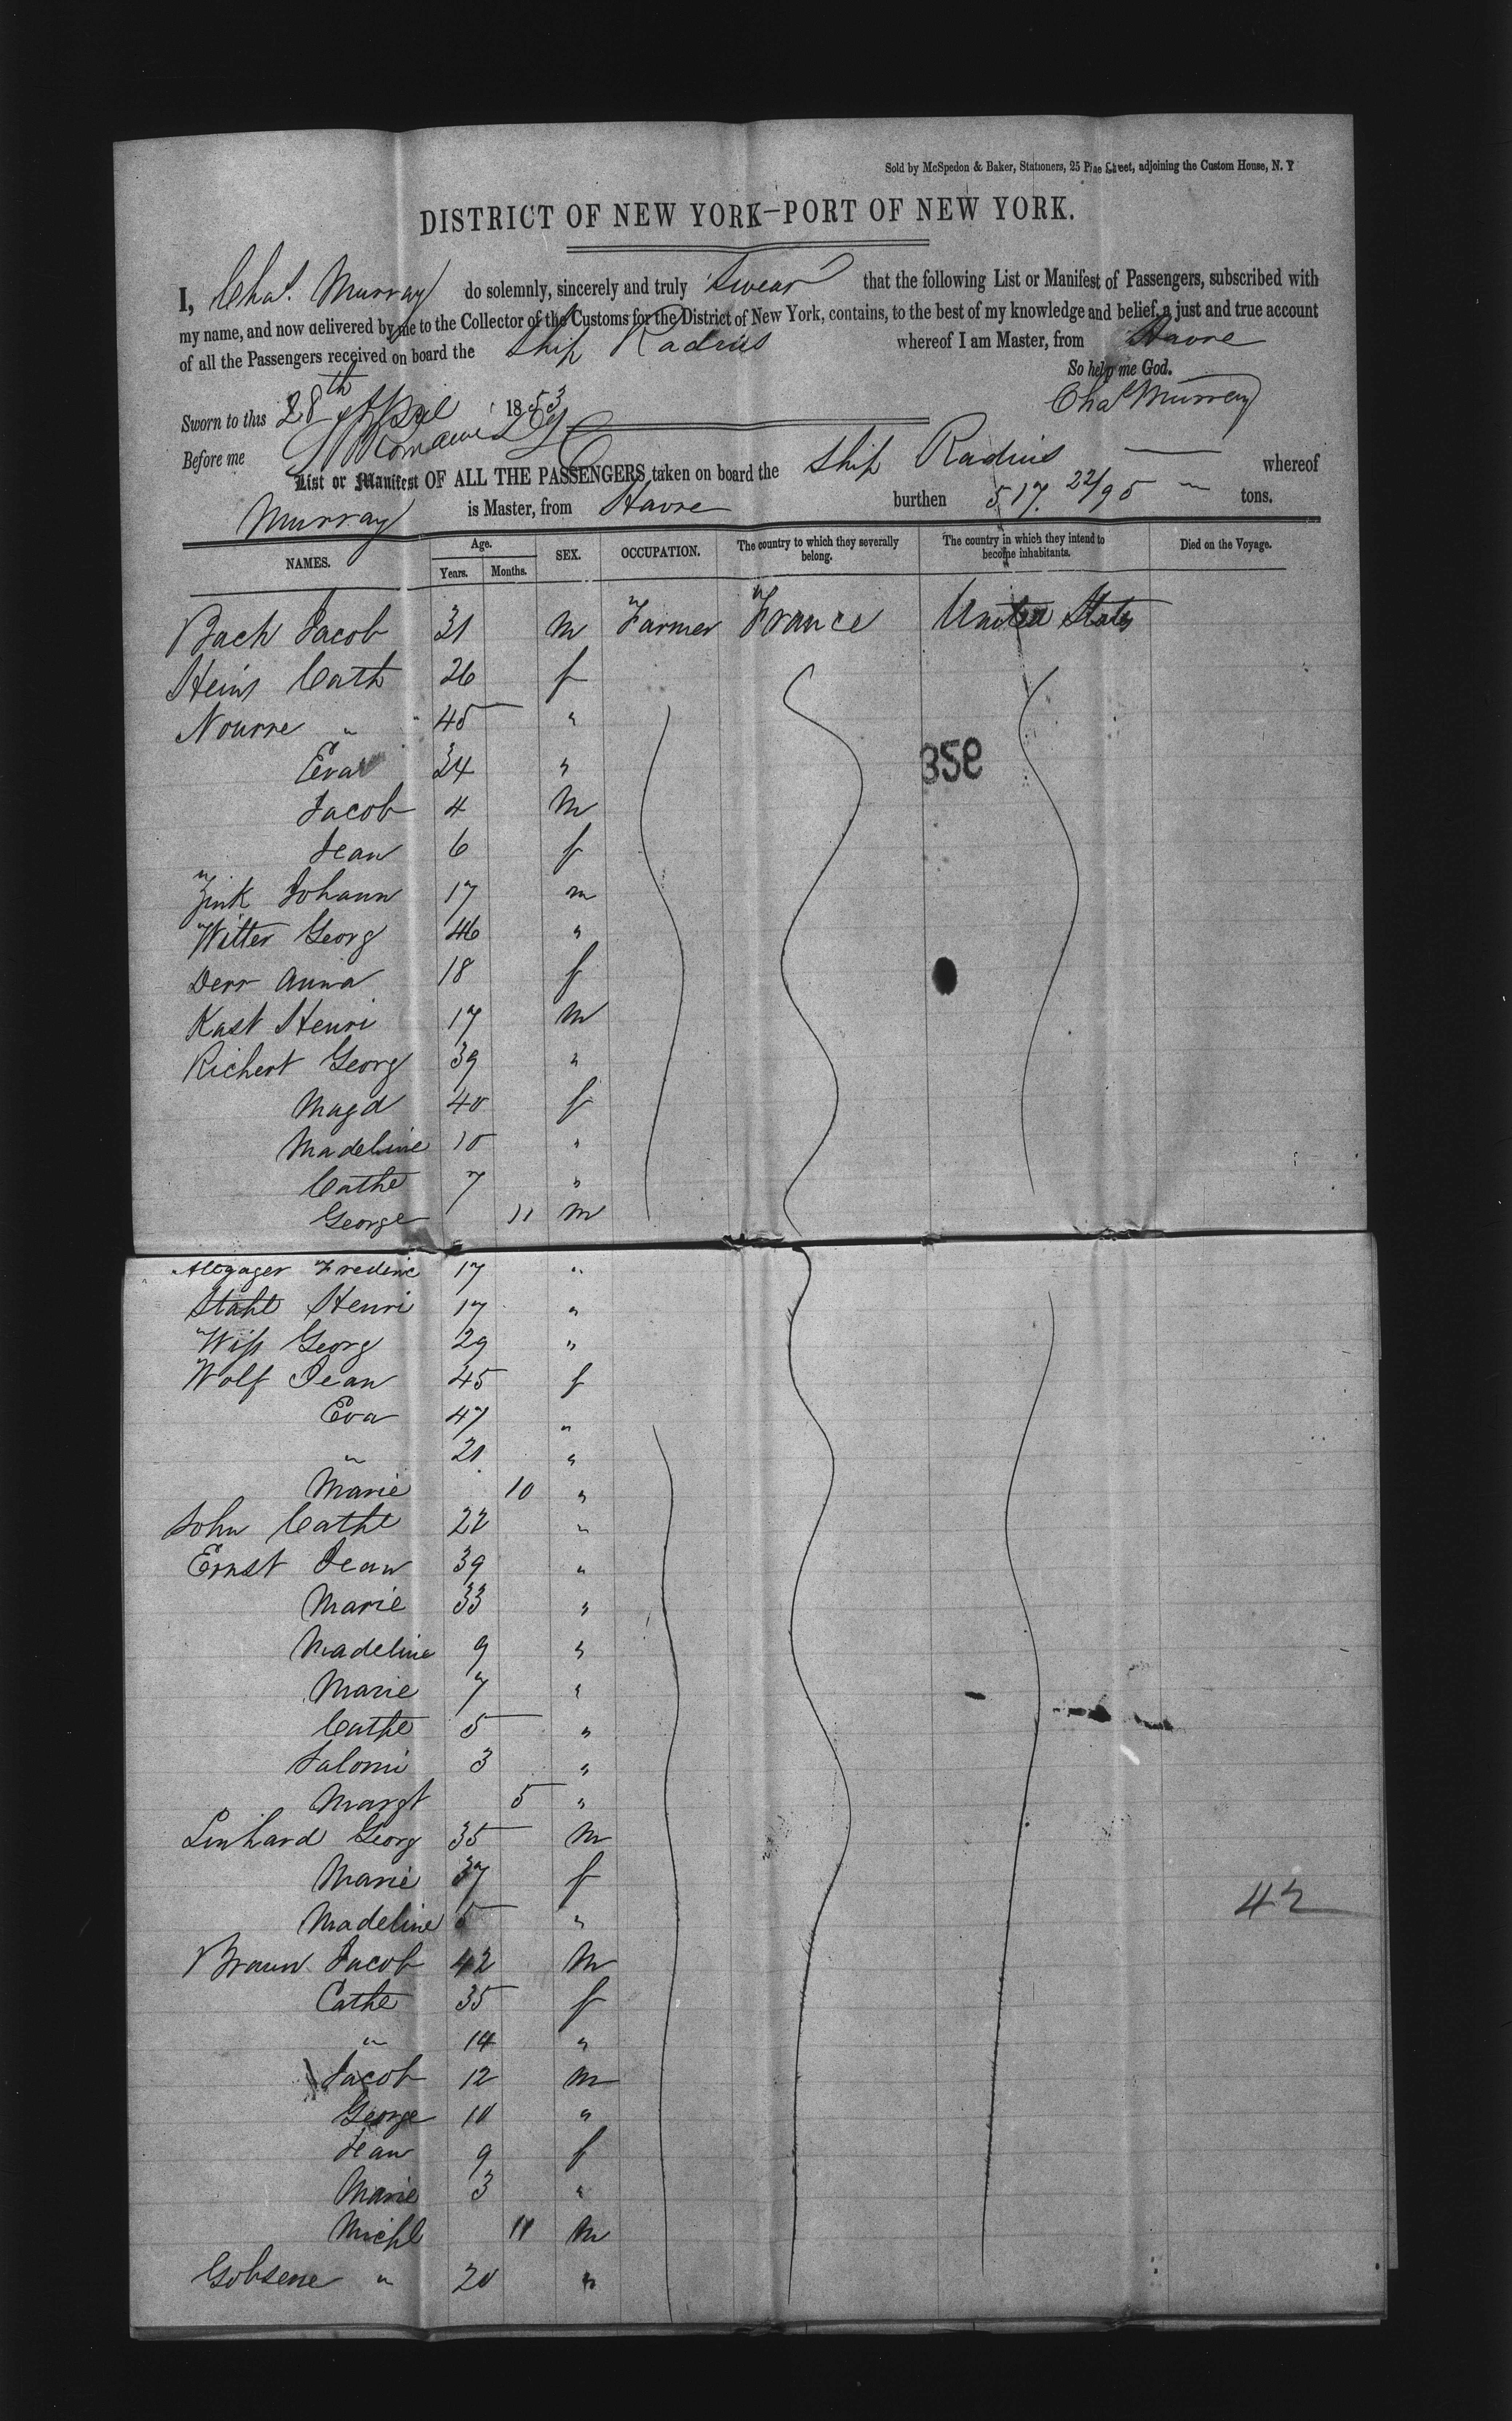 Sold by McSpedon & Baker, Stationers, 25 Pine Street, adjoining the Custom House, N. Y
DISTRICT OF NEW YORK—PORT OF NEW YORK.
I, Chas. Murray do solemnly, sincerely and truly Swear that the following List or Manifest of Passengers, subscribed with
my name, and now delivered by me to the Collector of the Customs for the District of New York, contains, to the best of my knowledge and belief, a just and true account
of all the Passengers received on board the Ship Radius whereof I am Master, from Havre
So help me God.
Sworn to this 28th April 1853 Chas Murray
Before me
List or Manifest OF ALL THE PASSENGERS taken on board the Ship Radius whereof
Murray is Master, from Havre burthen 517. 22/95 tons.
NAMES. Age. Years. Months. SEX. OCCUPATION. The country to which they severally belong. The country in which they intend to become inhabitants. Died on the Voyage.
Bach Jacob 31 m Farmer France United States
Heins Cath 26 f
Nourre " 45 "
Eva 34 "
359
Jacob 4 m
Jean 6 f
Zink Johann 17 m
Witter Georg 46 "
Derr Anna 18 f
Kast Henri 17 m
Richert Georg 39 "
Magd 40 f
Madeline 10 "
Cathe 7 "
George 11 m
Frederic 17 "
Stahl Henri 17 "
Wiss Georg 29 "
Wolf Jean 45 f
Eva 47 "
" 21 "
Marie 10 "
John Cathe 22 "
Ernst Jean 39 "
Marie 33 "
Madeline 9 "
Marie 7 "
Cathe 5 "
Salomi 3 "
Margt 5 "
Linhard Georg 35 m
Marie 37 f
Madeline 5 "
42
Braun Jacob 42 m
Cathe 35 f
" 14 "
Jacob 12 m
George 10 "
Jean 9 f
Marie 3 "
Michl 11 m
Gobsene " 20 "